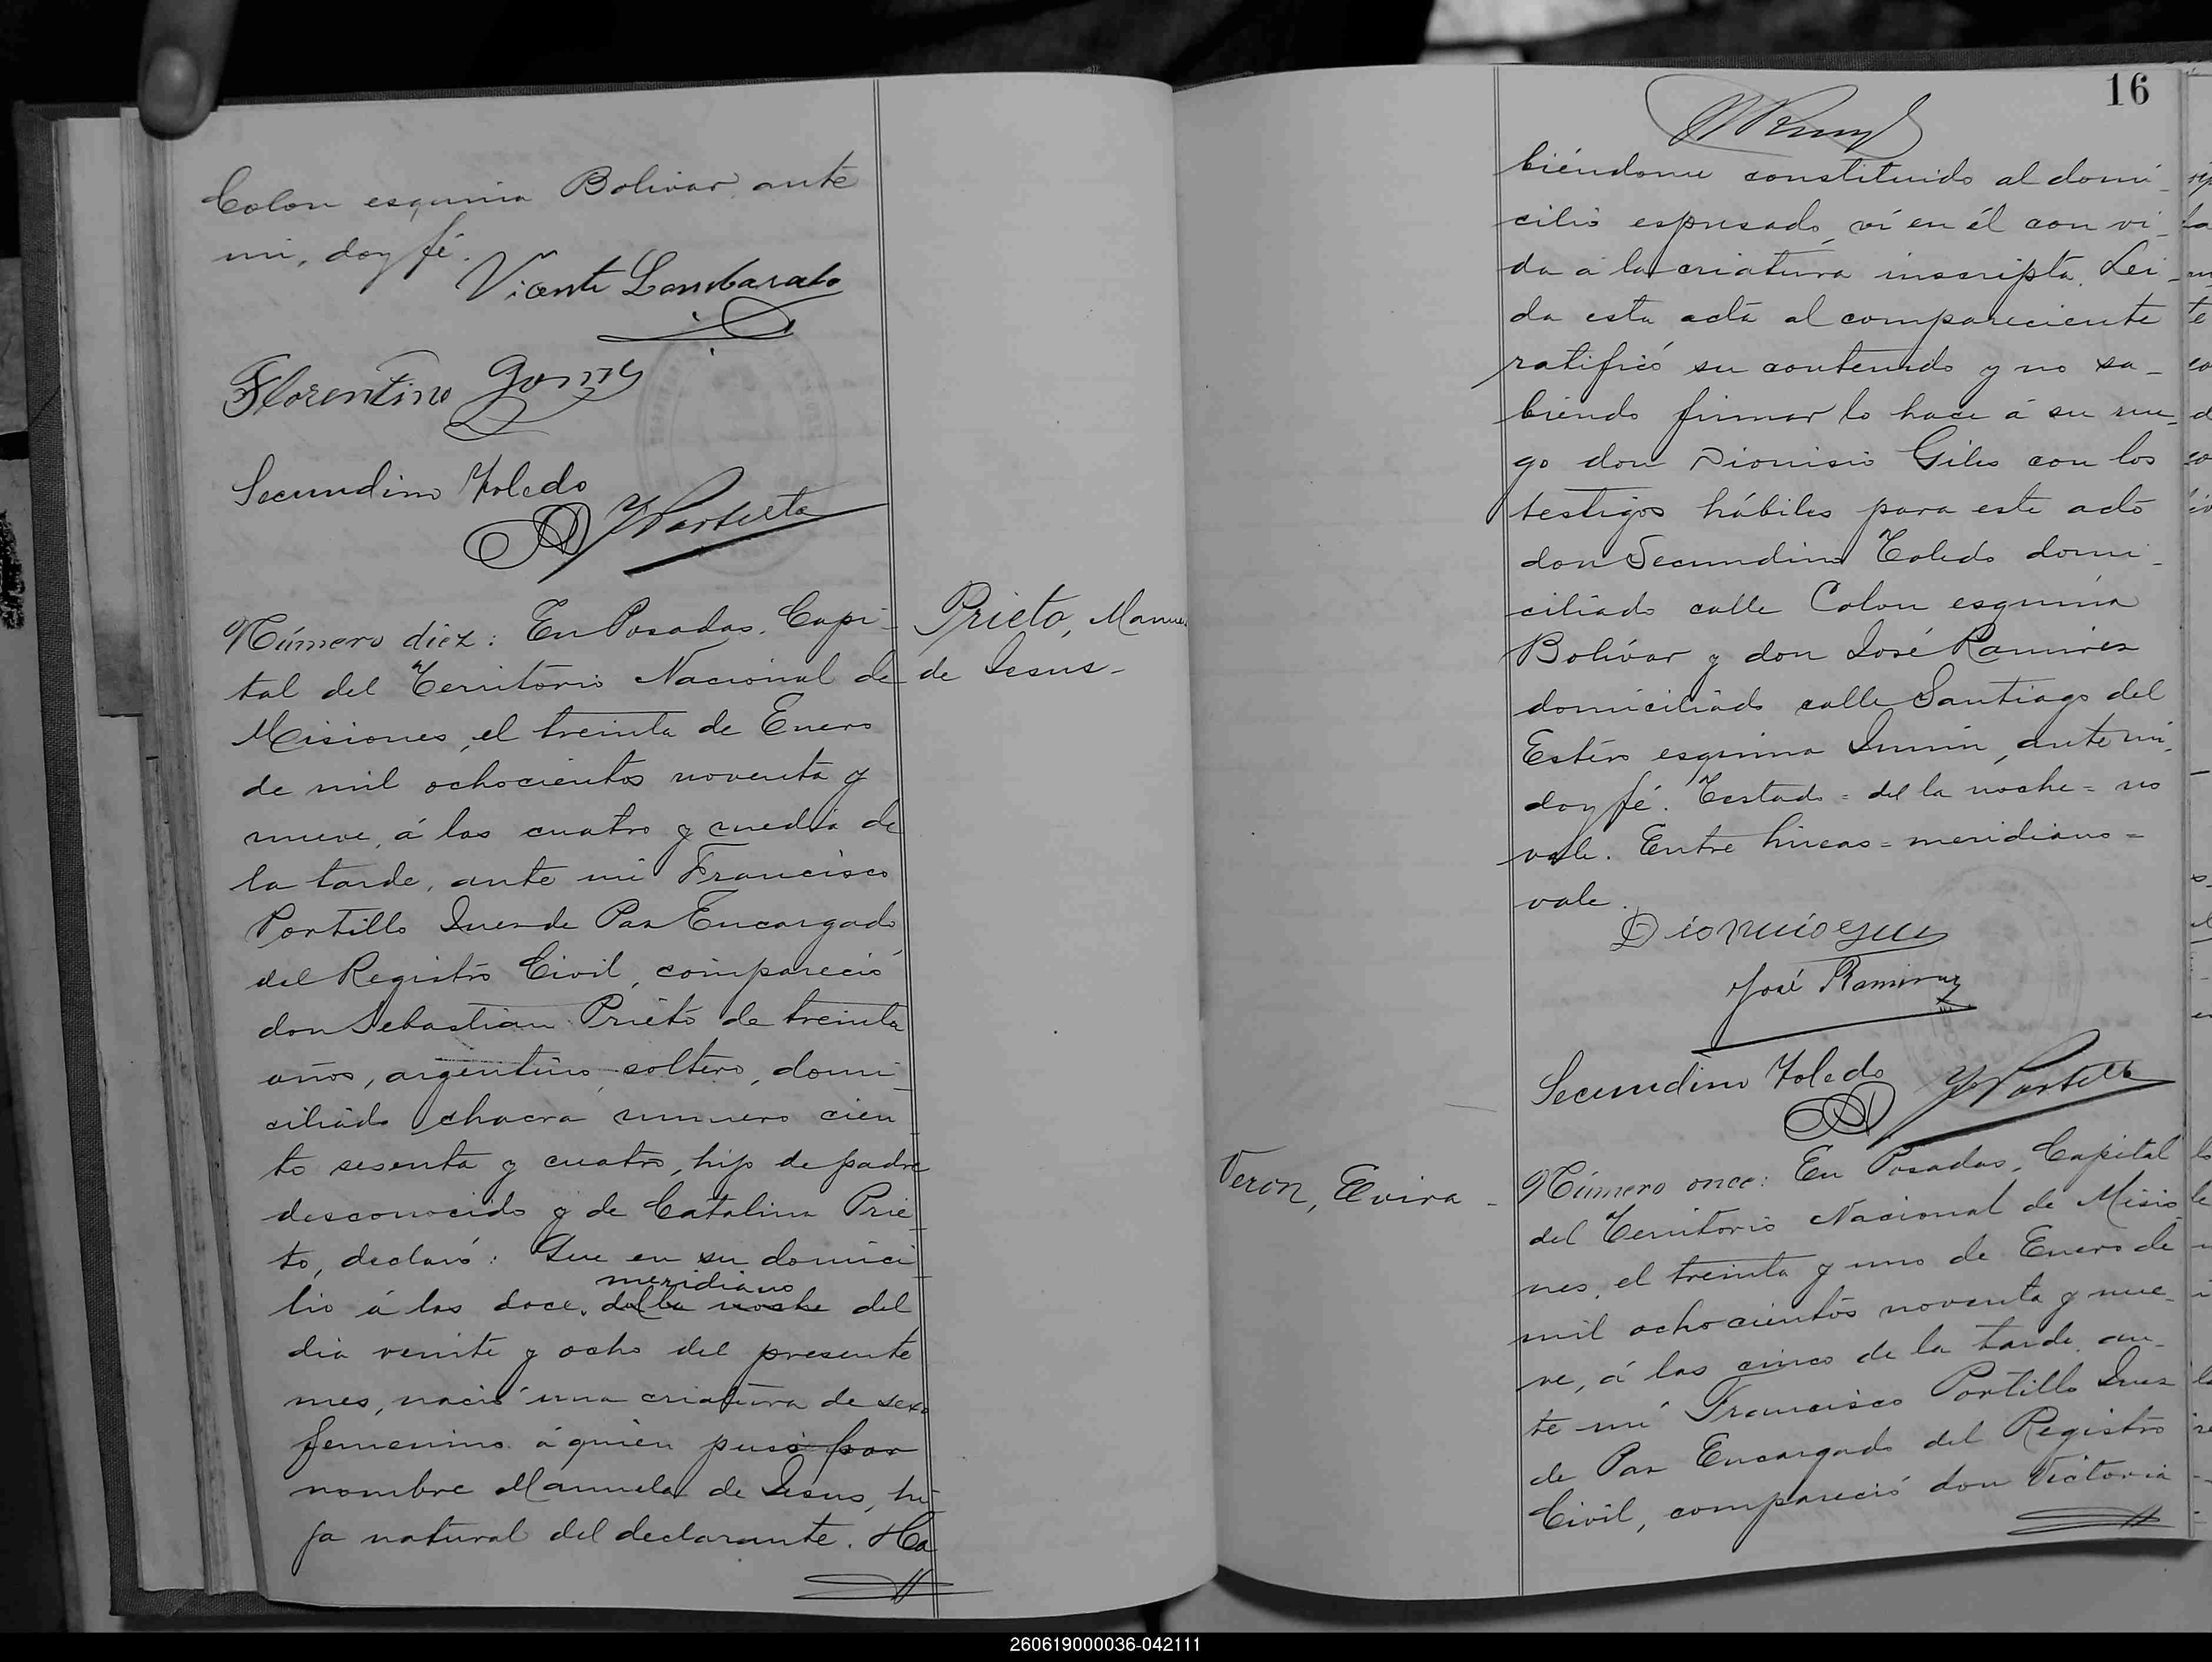 Colon esquina Bolivar, ante
mi, doy fé.
Vicente Lombarato
Florentino Gomez
Secundino Toledo
FPortillo
Número diez: En Posadas, Capi-
tal del Territorio Nacional de
Misiones, el treinta de Enero
de mil ochocientos noventa y
nueve, á las cuatro y media de
la tarde, ante mi Francisco
Portillo Juez de Paz Encargado
del Registro Civil, compareció
don Sebastian Prieto de treinta
años, argentino, soltero, domi-
ciliado chacra numero cien-
to sesenta y cuatro, hijo de padre
desconocido y de Catalina Prie-
to, declaró: Que en su domici-
meridiano
lio á las doce, de la noche del
dia veinte y ocho del presente
mes, nació una criatura de sexo
femenino á quien puso por
nombre Manuela de Jesus, hi-
ja natural del declarante. Ha
Prieto, Manuela
de Jesus-
16
biéndome constituido al domi-
cilio espresado, ví en él con vi-
da á la criatura inscripta. Lei-
da esta acta al compareciente
ratificó su contenido y no sa-
biendo firmar lo hace á su rue-
go don Dionisio Giles con los
testigos hábiles para este acto
don Secundino Toledo domi-
ciliado calle Colon esquina
Bolívar y don José Ramirez
domiciliado calle Santiago del
Estéro esquina Junin, ante mi,
doy fé. Testado = del la noche = no
vale. Entre lineas = meridiano =
vale.
José Ramirez
Secundino Toledo
FPortillo
Veron, Elvira -
Número once: En Posadas, Capital
del Territorio Nacional de Misio-
nes, el treinta y uno de Enero de
mil ochocientos noventa y nue-
ve, á las cinco de la tarde, an-
te mi Francisco Portillo Juez
de Paz Encargado del Registro
Civil, compareció don Victoria
260619000036-042111